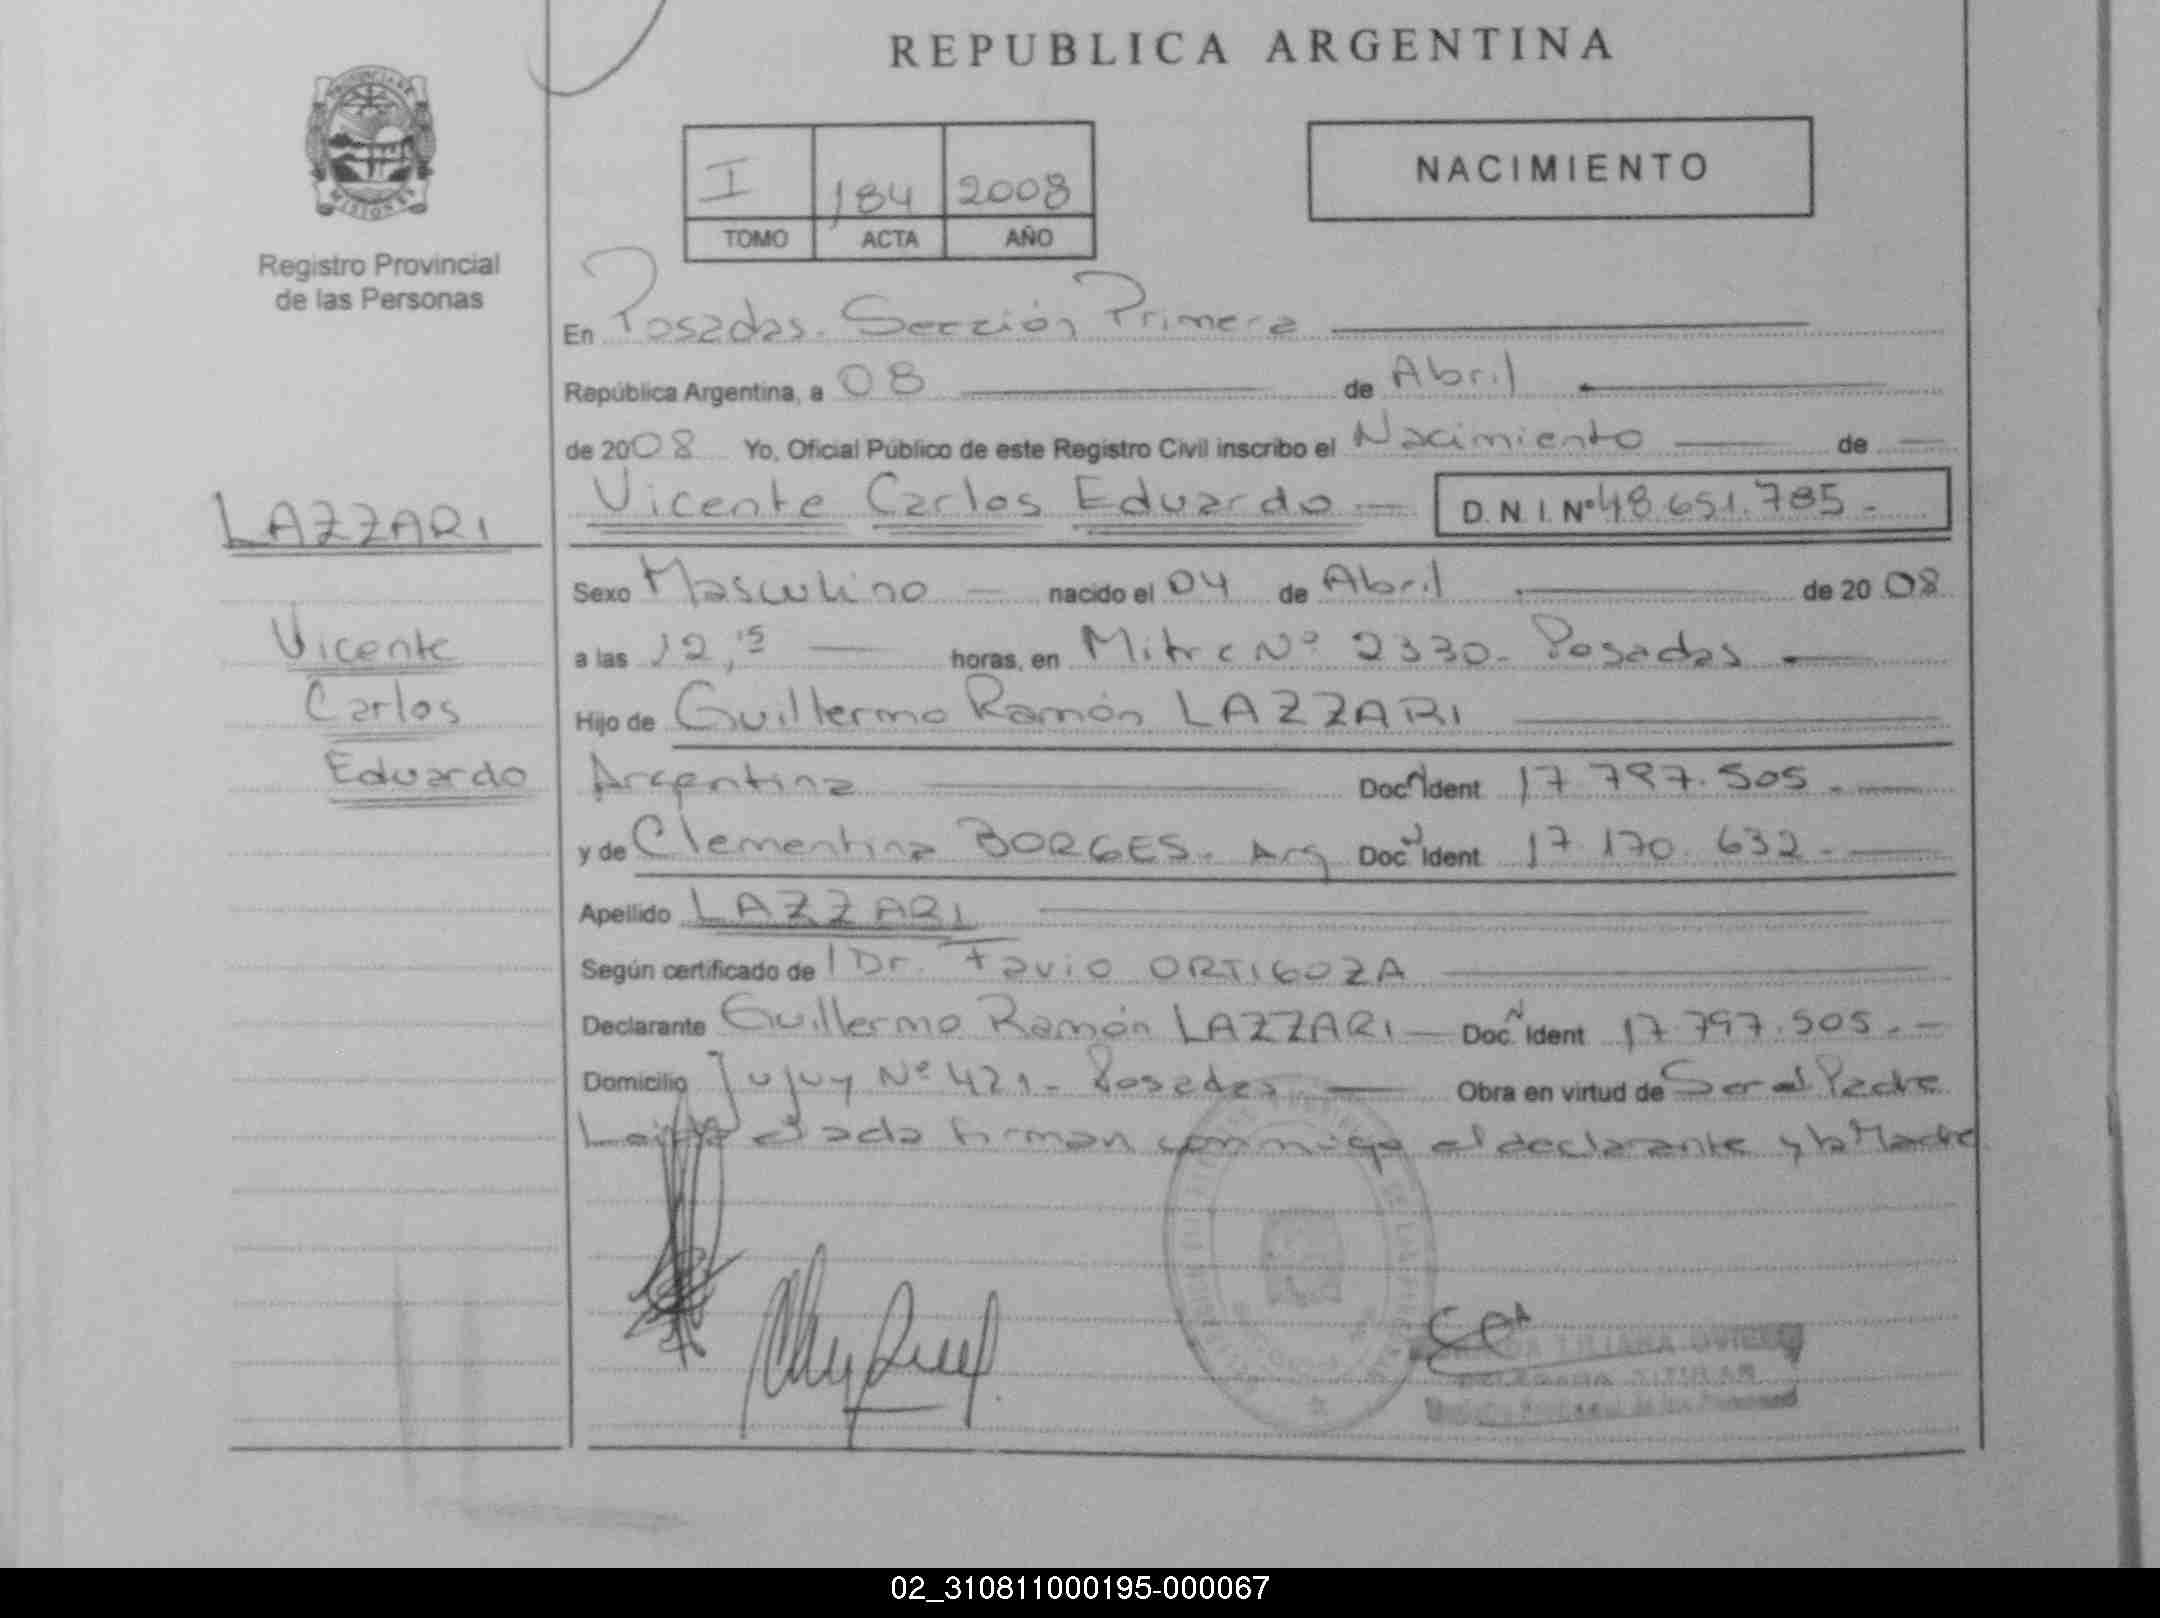 REPUBLICA ARGENTINA
PROVINCIA DE
MISIONES
Registro Provincial
de las Personas
I 184 2008
TOMO ACTA AÑO
NACIMIENTO
En Posadas. Sección Primera
República Argentina, a 08 de Abril
de 2008 Yo, Oficial Público de este Registro Civil inscribo el Nacimiento de
LAZZARI
Vicente
Carlos
Eduardo
Vicente Carlos Eduardo D.N.I. Nº 48.651.785.-
Sexo Masculino nacido el 04 de Abril de 2008
a las 12,15 horas, en Mitre Nº 2330. Posadas
Hijo de Guillermo Ramón LAZZARI
Argentina Doc N Ident 17.797.505.-
y de Clementina BORGES. Arg Doc N Ident 17.170.632.-
Apellido LAZZARI
Según certificado de l Dr. Favio ORTIGOZA
Declarante Guillermo Ramón LAZZARI Doc. N Ident 17.797.505.-
Domicilio Jujuy Nº 421. Posadas Obra en virtud de Ser el Padre
Leida el acta firman conmigo el declarante y la Madre
LILIANA
DELEGADA TITULAR
Registro Provincial de las Personas
02_310811000195-000067